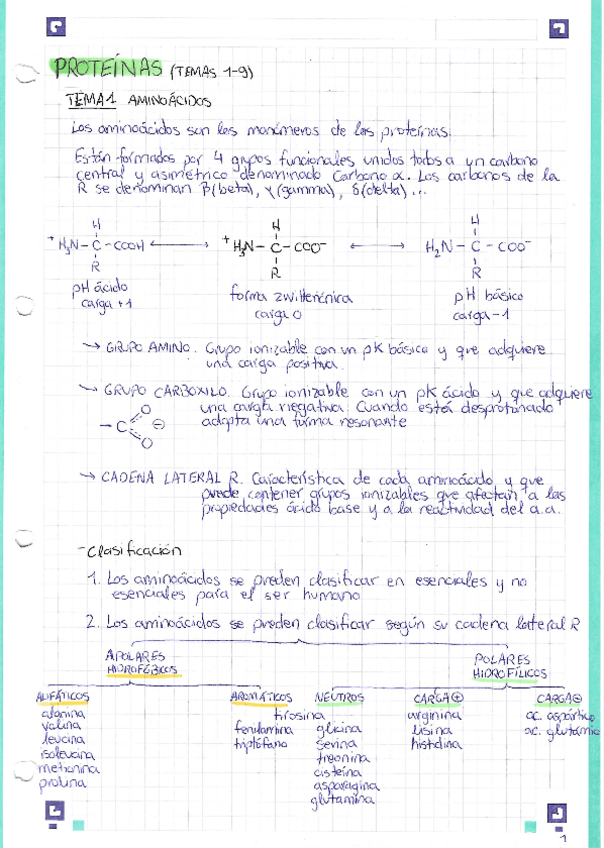 PROTEÍNAS (TEMAS 1-9)
TEMA 1 AMINOÁCIDOS
Los aminoácidos son los monómeros de las proteínas.
Están formados por 4 grupos funcionales unidos todos a un carbono
central y asimétrico denominado Carbono α. Los carbonos de la
R se denominan β(beta), γ(gamma), δ(delta)...
H H H
⁺H₃N-C-COOH ⟷ ⁺H₃N-C-COO⁻ ⟷ H₂N-C-COO⁻
R R R
pH ácido forma zwitteriónica pH básico
carga +1 carga 0 carga -1
→ GRUPO AMINO. Grupo ionizable con un pK básico y que adquiere
una carga positiva.
→ GRUPO CARBOXILO. Grupo ionizable con un pK ácido y que adquiere
una carga negativa. Cuando está desprotonado
adopta una forma resonante
-C O O ⊖
→ CADENA LATERAL R. Característica de cada aminoácido y que
puede contener grupos ionizables que afectan a las
propiedades ácido base y a la reactividad del a.a.
-Clasificación
1. Los aminoácidos se pueden clasificar en esenciales y no
esenciales para el ser humano
2. Los aminoácidos se pueden clasificar según su cadena lateral R
APOLARES POLARES
HIDROFÓBICOS HIDROFÍLICOS
ALIFÁTICOS AROMÁTICOS NEUTROS CARGA⊕ CARGA⊖
alanina tirosina arginina ac. aspártico
valina fenilamina glicina lisina ac. glutámic
leucina triptófano serina histidina
isoleucina treonina
metionina cisteína
prolina asparagina
glutamina
1